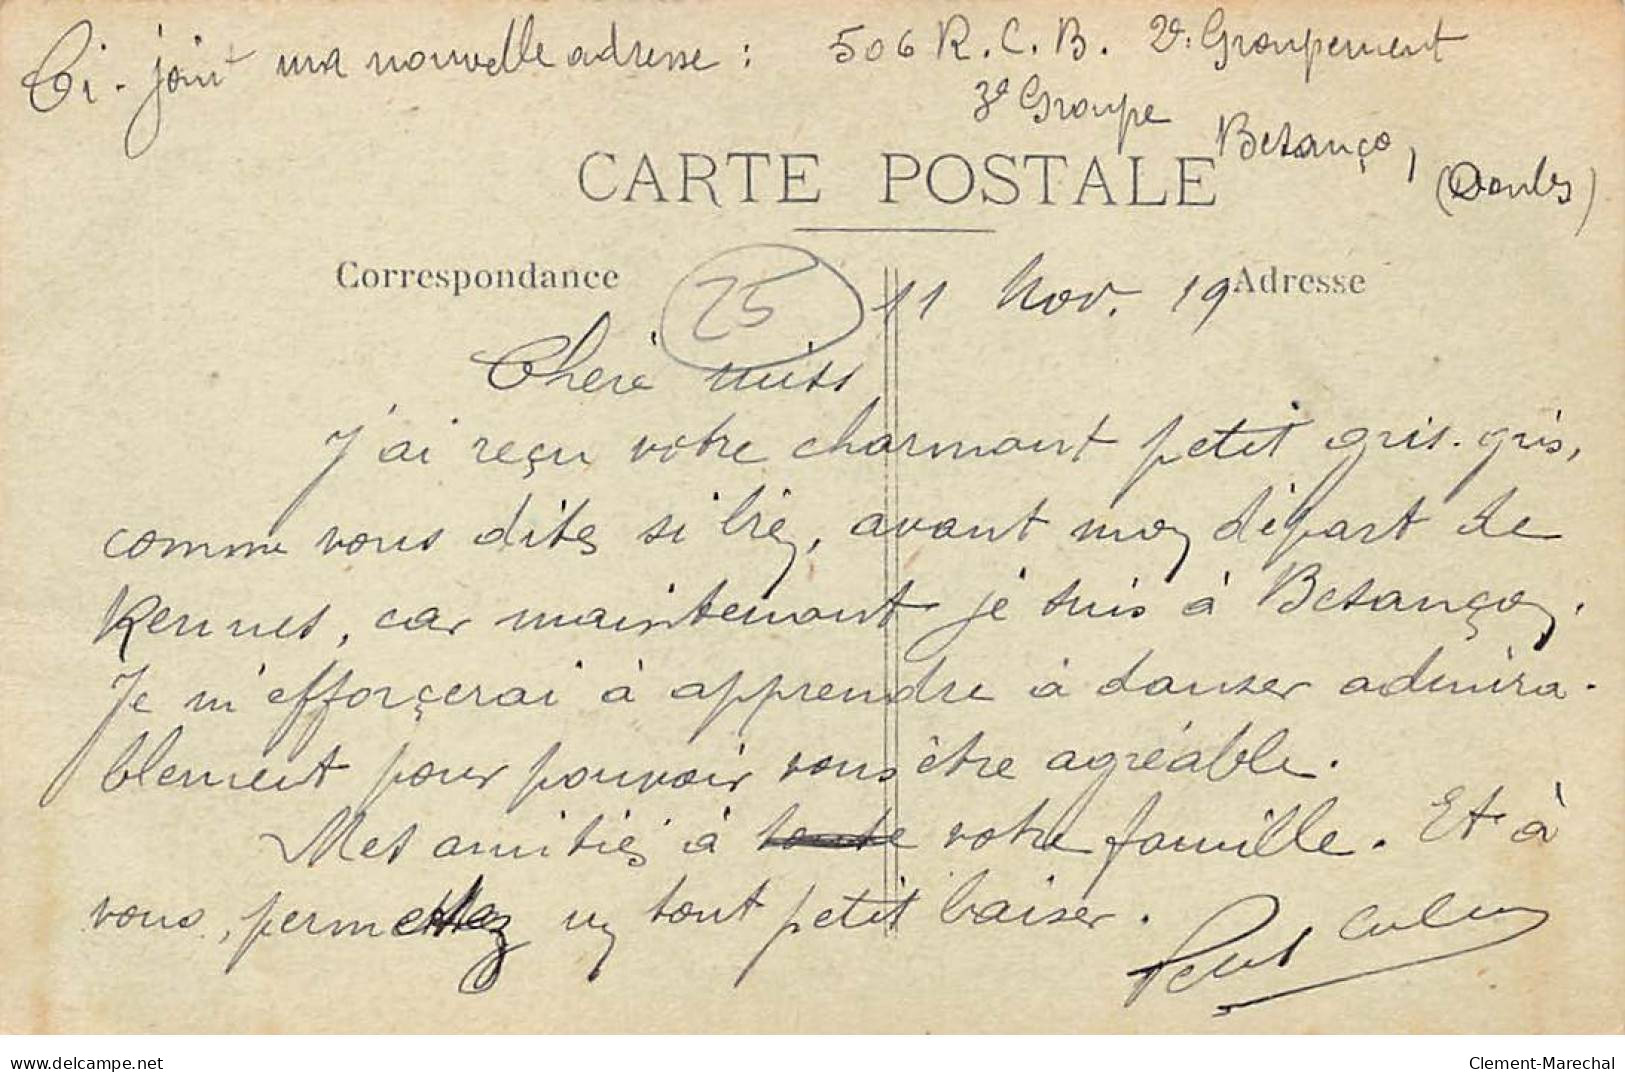 Ci-joint ma nouvelle adresse : 506 R. C. B. 2e Groupement
3e Groupe
Besançon, (Doubs)
CARTE POSTALE
Correspondance
Adresse
25
11 Nov. 19
Chère miss
J'ai reçu votre charmant petit gris-gris,
comme vous dites si bien, avant mon départ de
Rennes, car maintenant je suis à Besançon.
Je m'efforçerai à apprendre à danser admira-
blement pour pouvoir vous être agréable.
Mes amitiés à toute votre famille. Et à
vous, permettez un tout petit baiser.
delcampe.net
Clement-Marechal